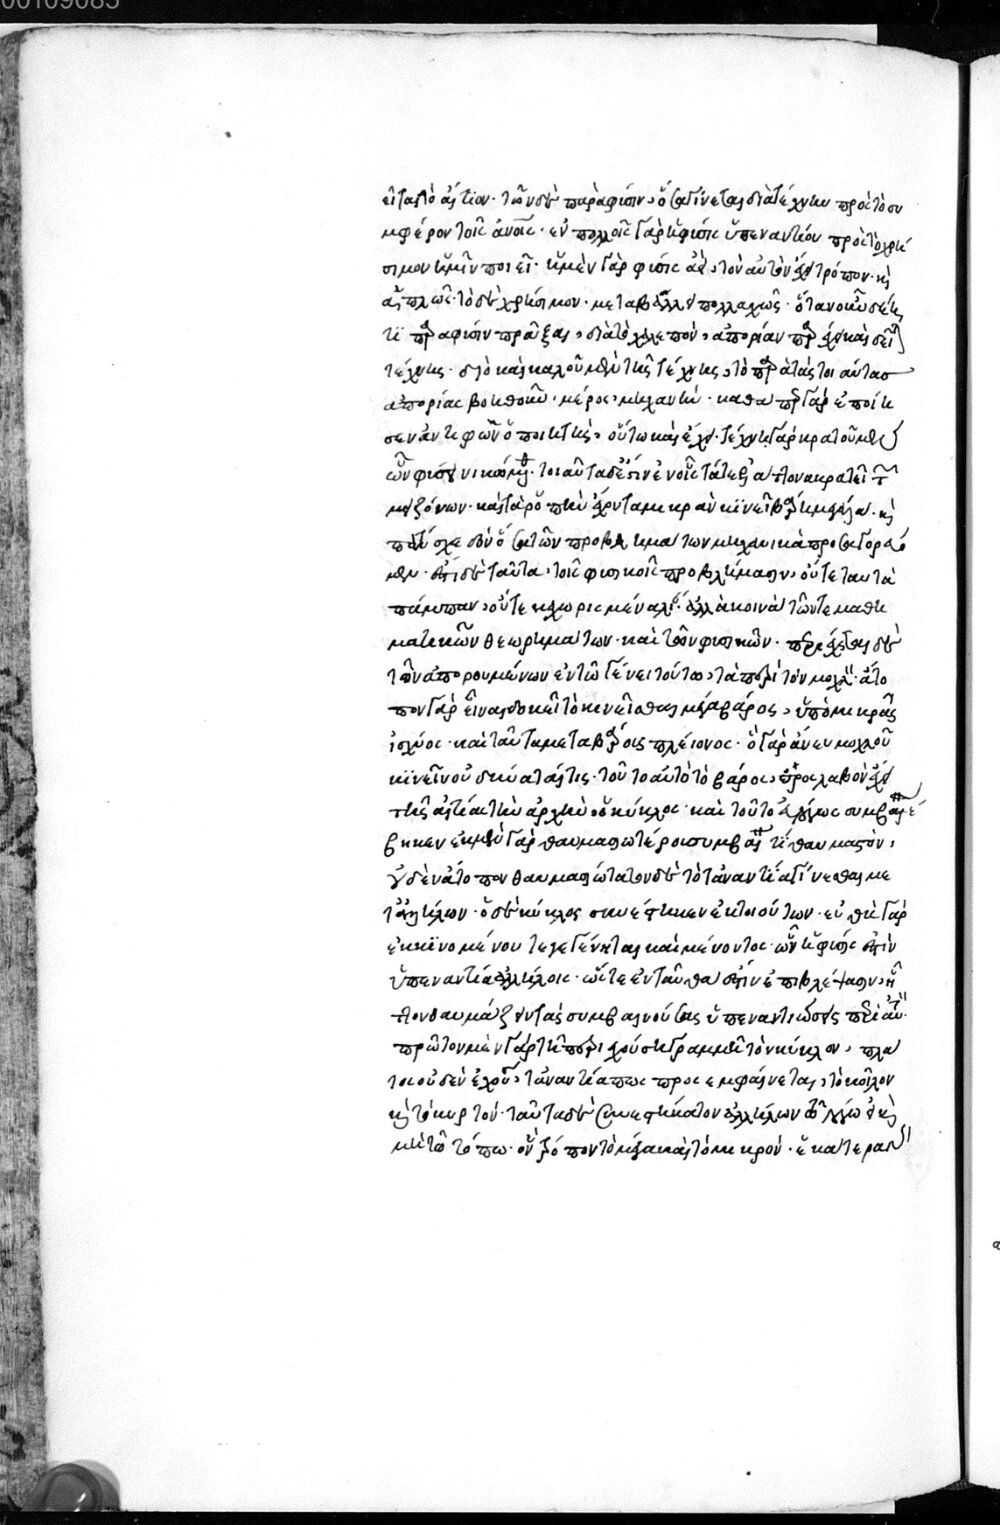 00109085
εῖται τὸ αἴτιον· τῶν δὲ παρὰ φύσιν, ὅσα γίνεται διὰ τέχνην πρὸς τὸ συ
μφέρον τοῖς ἀνοις· ἐν πολλοῖς γὰρ ἡ φύσις ὑπεναντίον πρὸς τὸ χρή
σιμον ἡμῖν ποιεῖ· ἡ μὲν γὰρ φύσις ἀεὶ τὸν αὐτὸν ἔχει τρόπον κ
ἁπλῶς· τὸ δὲ χρήσιμον μεταβάλλει πολλαχῶς· ὅταν οὖν δέῃ
τι παρα φύσιν πρᾶξαι, διὰ τὸ χαλεπὸν, ἀπορίαν παρέχει καὶ δεῖ
τέχνης· διὸ καὶ καλοῦμεν τῆς τέχνης, τὸ πρὸς τὰς τοιαύτας
ἀπορίας βοηθοῦν μέρος, μηχανήν· καθάπερ γὰρ ἐποίη
σεν ἀντιφῶν ὁ ποιητὴς, οὕτω καὶ ἔχει· τέχνῃ γὰρ κρατοῦμεν
ὧν φύσει νικώμεθα· τοιαῦτα δέ ἐστιν ἐν οἷς τά τε ἐλάττονα κρατεῖ τῶν
μειζόνων· καὶ τὰ ῥοπὴν ἔχοντα μικρὰν κινεῖ βάρη μεγάλα· κ
πάντα σχεδὸν ὅσα τῶν προβλημάτων μηχανικὰ προσαγορεύο
μεν· ἔστι δὲ ταῦτα, τοῖς φυσικοῖς προβλήμασιν, οὔτε ταυτὰ
πάμπαν, οὔτε κεχωρισμένα λίαν· ἀλλὰ κοινὰ τῶν τε μαθη
ματικῶν θεωρημάτων· καὶ τῶν φυσικῶν· περιέχεται δὲ
τῶν ἀπορουμένων ἐν τῶ γένει τούτω, τὰ περὶ τὸν μοχλόν· ἄτο
πον γὰρ εἶναι δοκεῖ τὸ κινεῖσθαι μέγα βάρος, ὑπὸ μικρᾶς
ἰσχύος· καὶ ταῦτα μετα βάρους πλείονος· ὃ γὰρ ἄνευ μοχλοῦ
κινεῖν οὐ δύναταί τις· τοῦτο αὐτὸ τὸ βάρος, προσλαβὸν ἔχει
τῆς αἰτίας τὴν ἀρχὴν ὁ κύκλος· καὶ τοῦτο εὐλόγως συμβέ
βηκεν ἐκ μὲν γὰρ θαυμασιωτέρου συμβαίνειν τι θαυμαστὸν,
οὐδὲν ἄτοπον θαυμασιώτατον δὲ τὸ τἀναντία γίνεσθαι με
τ᾽ἀλλήλων· ὁ δὲ κύκλος συνέστηκεν ἐκ τοιούτων· εὐθὺς γὰρ
ἐκ κινομένου τε γεγένηται καὶ μένοντος· ὧν ἡ φύσις ἐστὶν
ὑπεναντία ἀλλήλοις· ὥστε ἐνταῦθα ἔστιν ἐπιβλέψασιν ἧτ
τον θαυμάζειν τὰς συμβαινούσας ὑπεναντιώσεις περὶ αὐτόν·
πρῶτον μὲν γὰρ τῆ περιεχούση γραμμῆ τὸν κύκλον, πλα
τος οὐδὲν ἐχούσῃ, τἀναντία πως προσεμφαίνεται, τὸ κοῖλον
κ τὸ κυρτόν· ταῦτα δὲ διέστηκεν ἀλλήλων ὃν τρόπον
τὸ μέγα καὶ τὸ μικρόν· ἑκατέρων